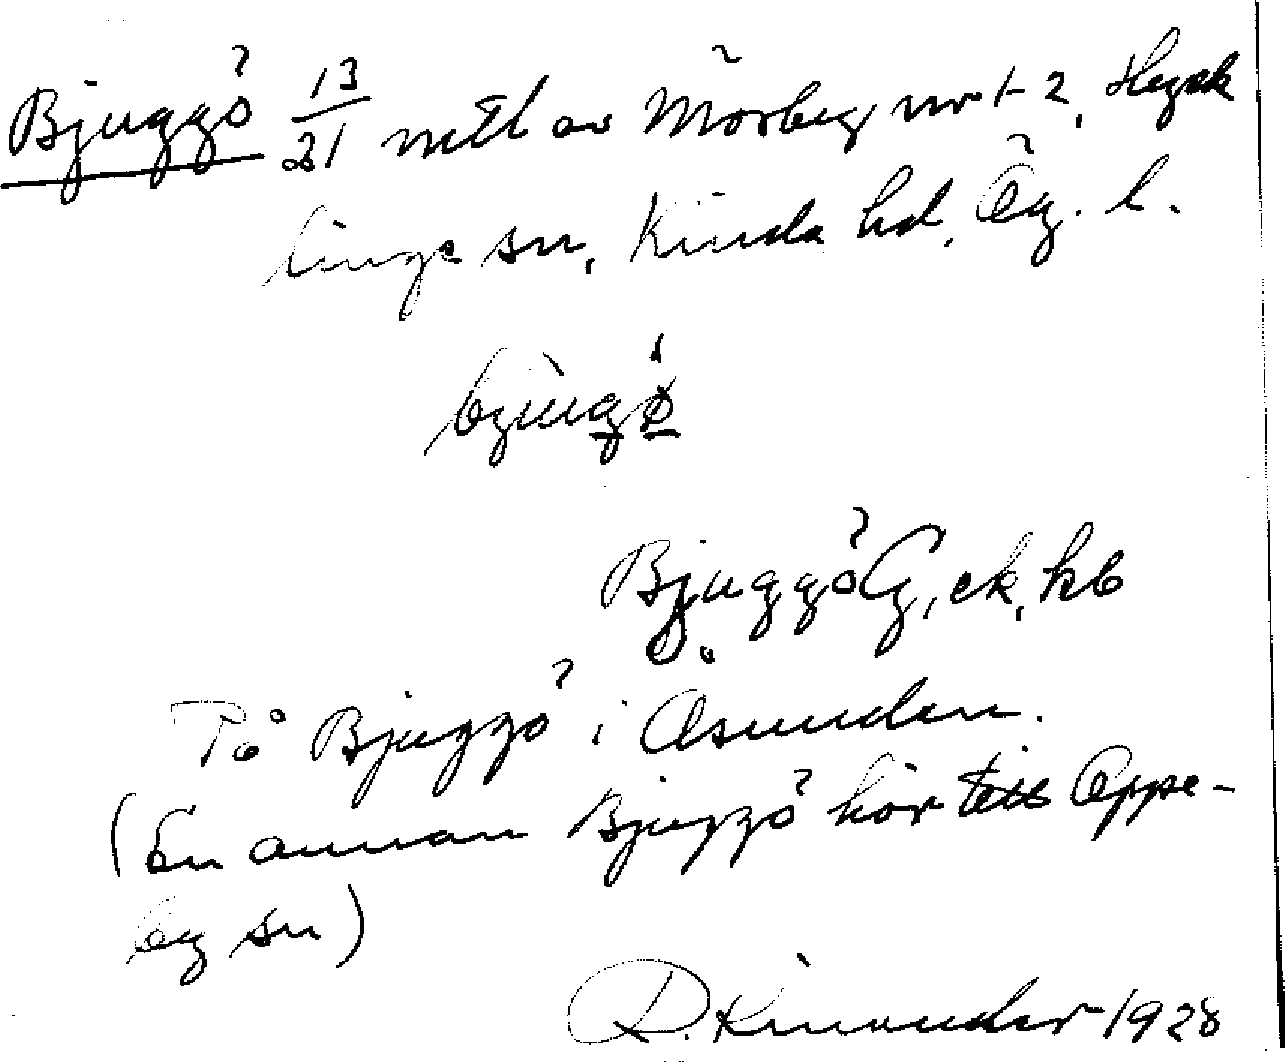 Bjuggö 13/21 mtl av Mörby nr 1-2, Hyck
linge sn, Kinda hd, Ög. l.
bjùgǿ
Bjuggö G, ek, kb
På Bjuggö i Åsunden.
(En annan Bjuggö hör till Oppe-
by sn)
D. Kinander 1928